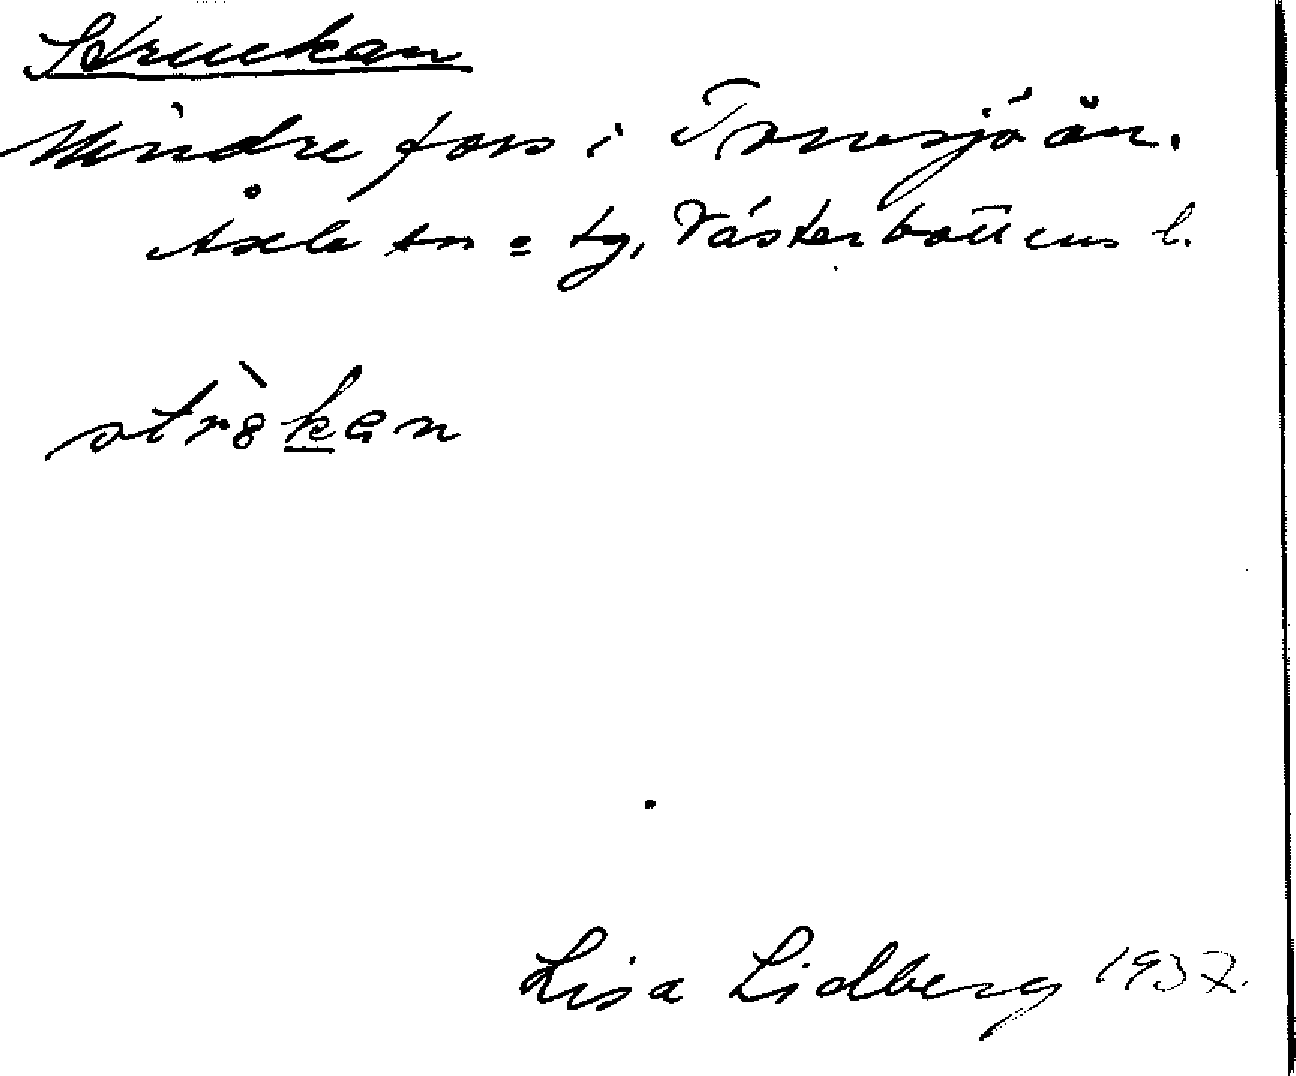 Struckan
Mindre fors i Torvsjöån.
Åsele sn o tg, Västerbottens l.
Lisa Lidberg 1937.